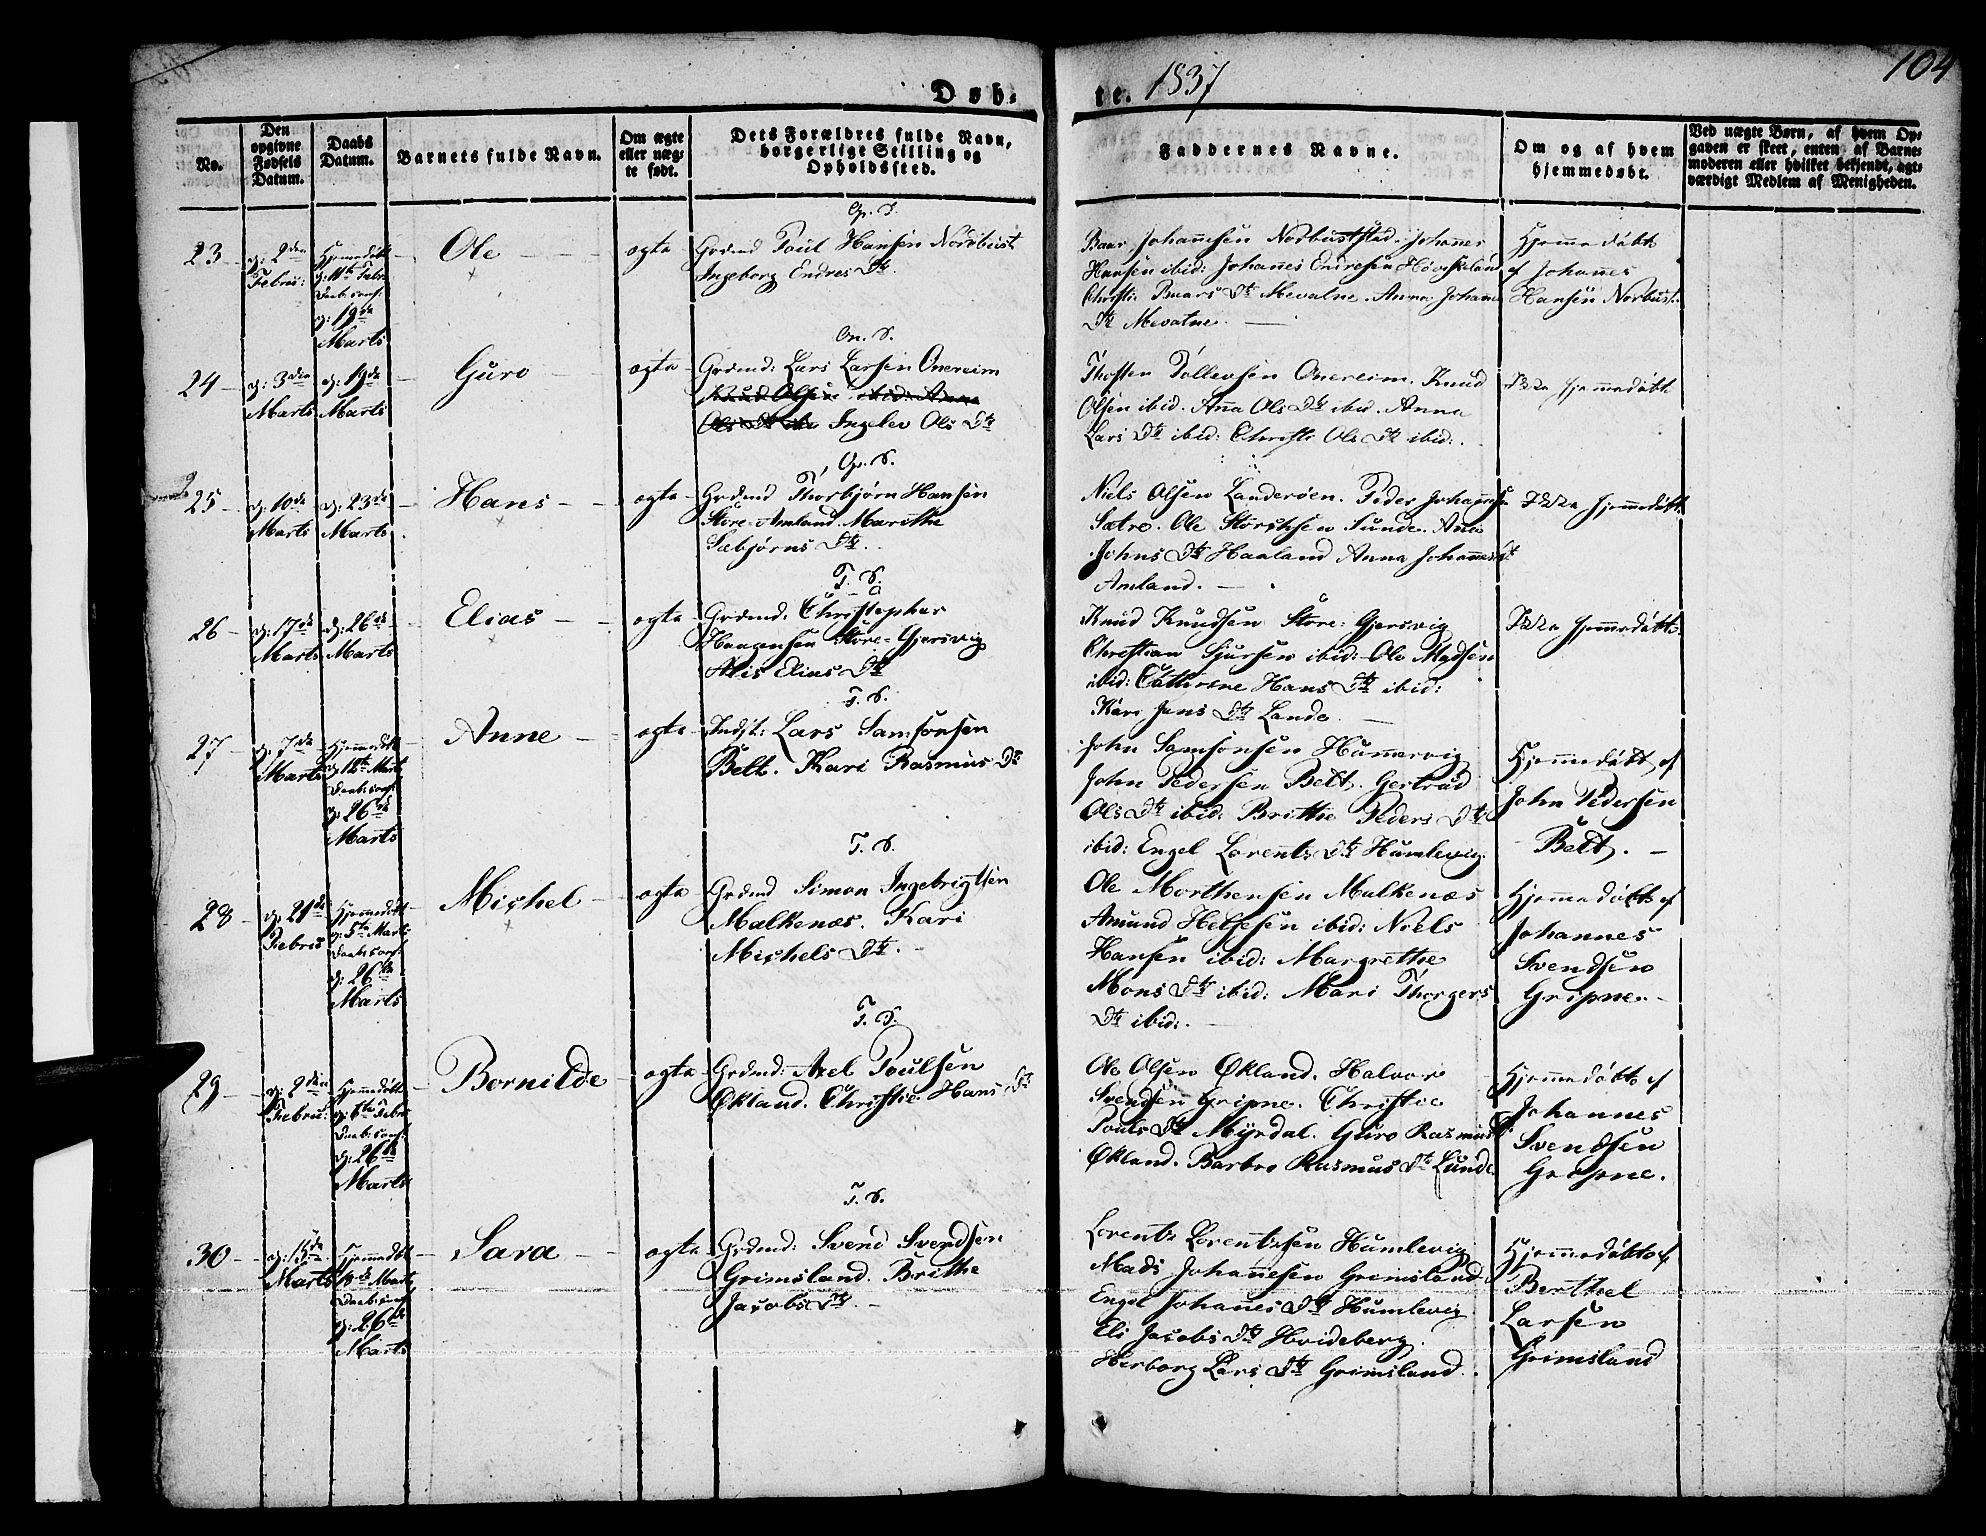 Døb-
te. 1837
104
No.
Den
opgivne
Fødsels
Datum.
Daabs
Datum.
Barnets fulde Navn.
Om ægte
eller uæg-
te født.
Dets Forældres fulde Navn,
borgerlige Stilling og
Opholdssted.
Faddernes Navne.
Om og af hvem
hjemmedøbt.
Ved uægte Børn, af hvem Op-
gaven er skeet, enten af Barne-
moderen eller hvilket bekjendt, agt-
værdigt Medlem af Menigheden.
23
d: 2den
Febru:
Hjemedøbt
d: 11te Febr:
Daabs conf:
d: 19de
Marts
Ole
ægte
Grdmd Poul Hansen Nordbust
Ingeborg Endres Dtr.
Baar Johannesen Norbustslad. Johannes
Hansen ibid: Johannes Endresen Høveskeland
Christie Baars Dtr Mevatne. Anna Johans
Dtr Mevatne.
Hjemmedøbt
af Johannes
Hansen Norbust.
24
d: 3den
Marts
d: 19de
Marts
Guro
ægte
On. S.
Grdmd: Lars Larsen Onereim
Knud Olsen ibid: Anna
Ols Dtr ibid Ingelev Ols Dtr
Thosten Tollevsen Onereim. Knud
Olsen ibid. Anna Ols Dtr ibid. Anna
Lars Dtr ibid: Christi Ole Dtr ibid:
Ikke hjemmedøbt
25
d: 10de
Marts
d: 23de
Marts
Hans
ægte
Grdmd Thorbjørn Hansen
Store-Amland. Marithe
Sæbjørns Dtr.
Niels Olsen Landerøen. Peder Johannesen
Sætre. Ole Størchsen Sunde. Ana
Johns Dtr Haaland Anna Johannes Dt
Amland.
Ikke hjemmedøbt
26
d: 17de
Marts
d: 26de
Marts
Elias
ægte
T. S.
Grdmd. Christopher
Haagensen Store-Gjersvig
Alis Elias Dtr
Knud Knudsen Store-Gjersvig
Christian Sjursen ibid: Ole Madsen
ibid: Cathrine Hans Dtr ibid:
Kari Jens Dtr Lande.
Ikke hjemmedøbt.
27
d: 7de
Marts
Hjemmedøbt
d: 12te Marts
Daabs conf:
d: 26de
Marts
Anne
ægte
T. S.
Indst: Lars Samsonsen
Belt. Kari Rasmus Dr
John Samsonsen Hummervig
John Pedersen Belt. Gertrud
Ols Dtr ibid: Brithe Peders Dtr
ibid: Engel Lorents Dtr Humlevig.
Hjemmedøbt af
John Pedersen
Belt.
28
d: 21de
Febris
Hjemmedøbt
d: 5te Marts
Daabs conf:
d: 26de
Marts
Michel
ægte
T. S.
Grdmd Simon Ingebrigtsen
Malkenæs. Kari
Michels Dtr.
Ole Morthensen Malkenæs
Amund Helgesen ibid: Niels
Hansen ibid: Margrethe
Mons Dtr ibid: Mari Thorgers
Dtr ibid:
Hjemmedøbt af
Johannes
Svendsen
Gripne.
29
d: 2den
Febru:
Hjemmedøbt
d: 6te Febr
Daabs conf:
d: 26de
Marts
Bornilde
ægte
T. S.
Grdmd: Axel Poulsen
Økland. Christie Hans Dtr
Ole Olsen Økland. Halvor
Svendsen Gripne. Christie
Pouls Dtr Myrdal. Guro Rasmus Dt
Økland. Barbro Rasmus Dtr Lunde
Hjemmedøbt af
Johannes
Svendsen
Gripne.
30
d: 15de
Marts
Hjemmedøbt
18de Marts
Daabs conf
d: 26de
Marts
Sara
ægte
T. S.
Grdmd: Svend Svendsen
Grimsland. Brithe
Jacobs Dtr.
Lorents Lorentzsen Humlevig
Mads Johannesen Grimsland.
Engel Johanes Dtr Humlevig
Eli Jacobs Dtr Hvideberg.
Herborg Lars Dtr Grimsland.
Hjemmedøbt af
Berthel
Larsen
Grimsland